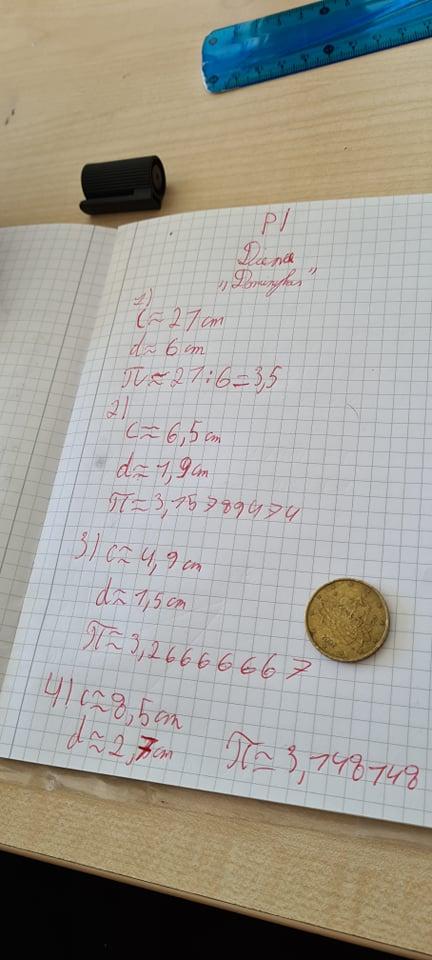 PI
Diana
1)
C≈21 cm
d≈6 cm
π≈21:6=3,5
2)
C≈6,5 cm
d≈1,9 cm
π≈3,15789474
3) C≈4,9 cm
d≈1,5 cm
π≈3,266666667
4) C≈8,5 cm
d≈2,7 cm π≈3,148148